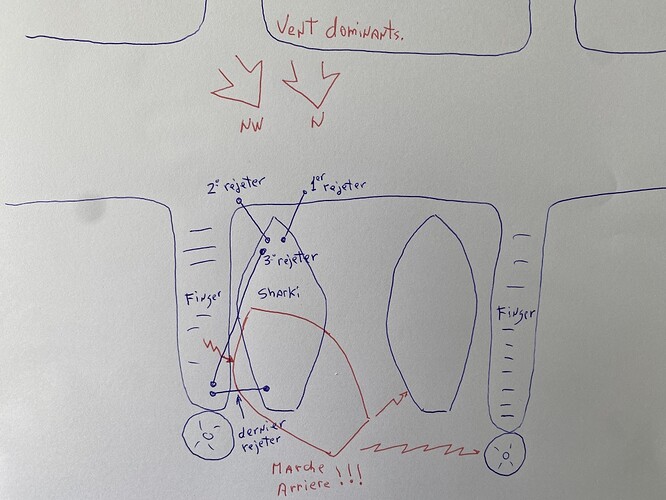 Vent dominants.
NW
N
2e rejeter
1er rejeter
3e rejeter
Finger
Sharki
Finger
dernier
rejeter
Marche
Arriere !!!